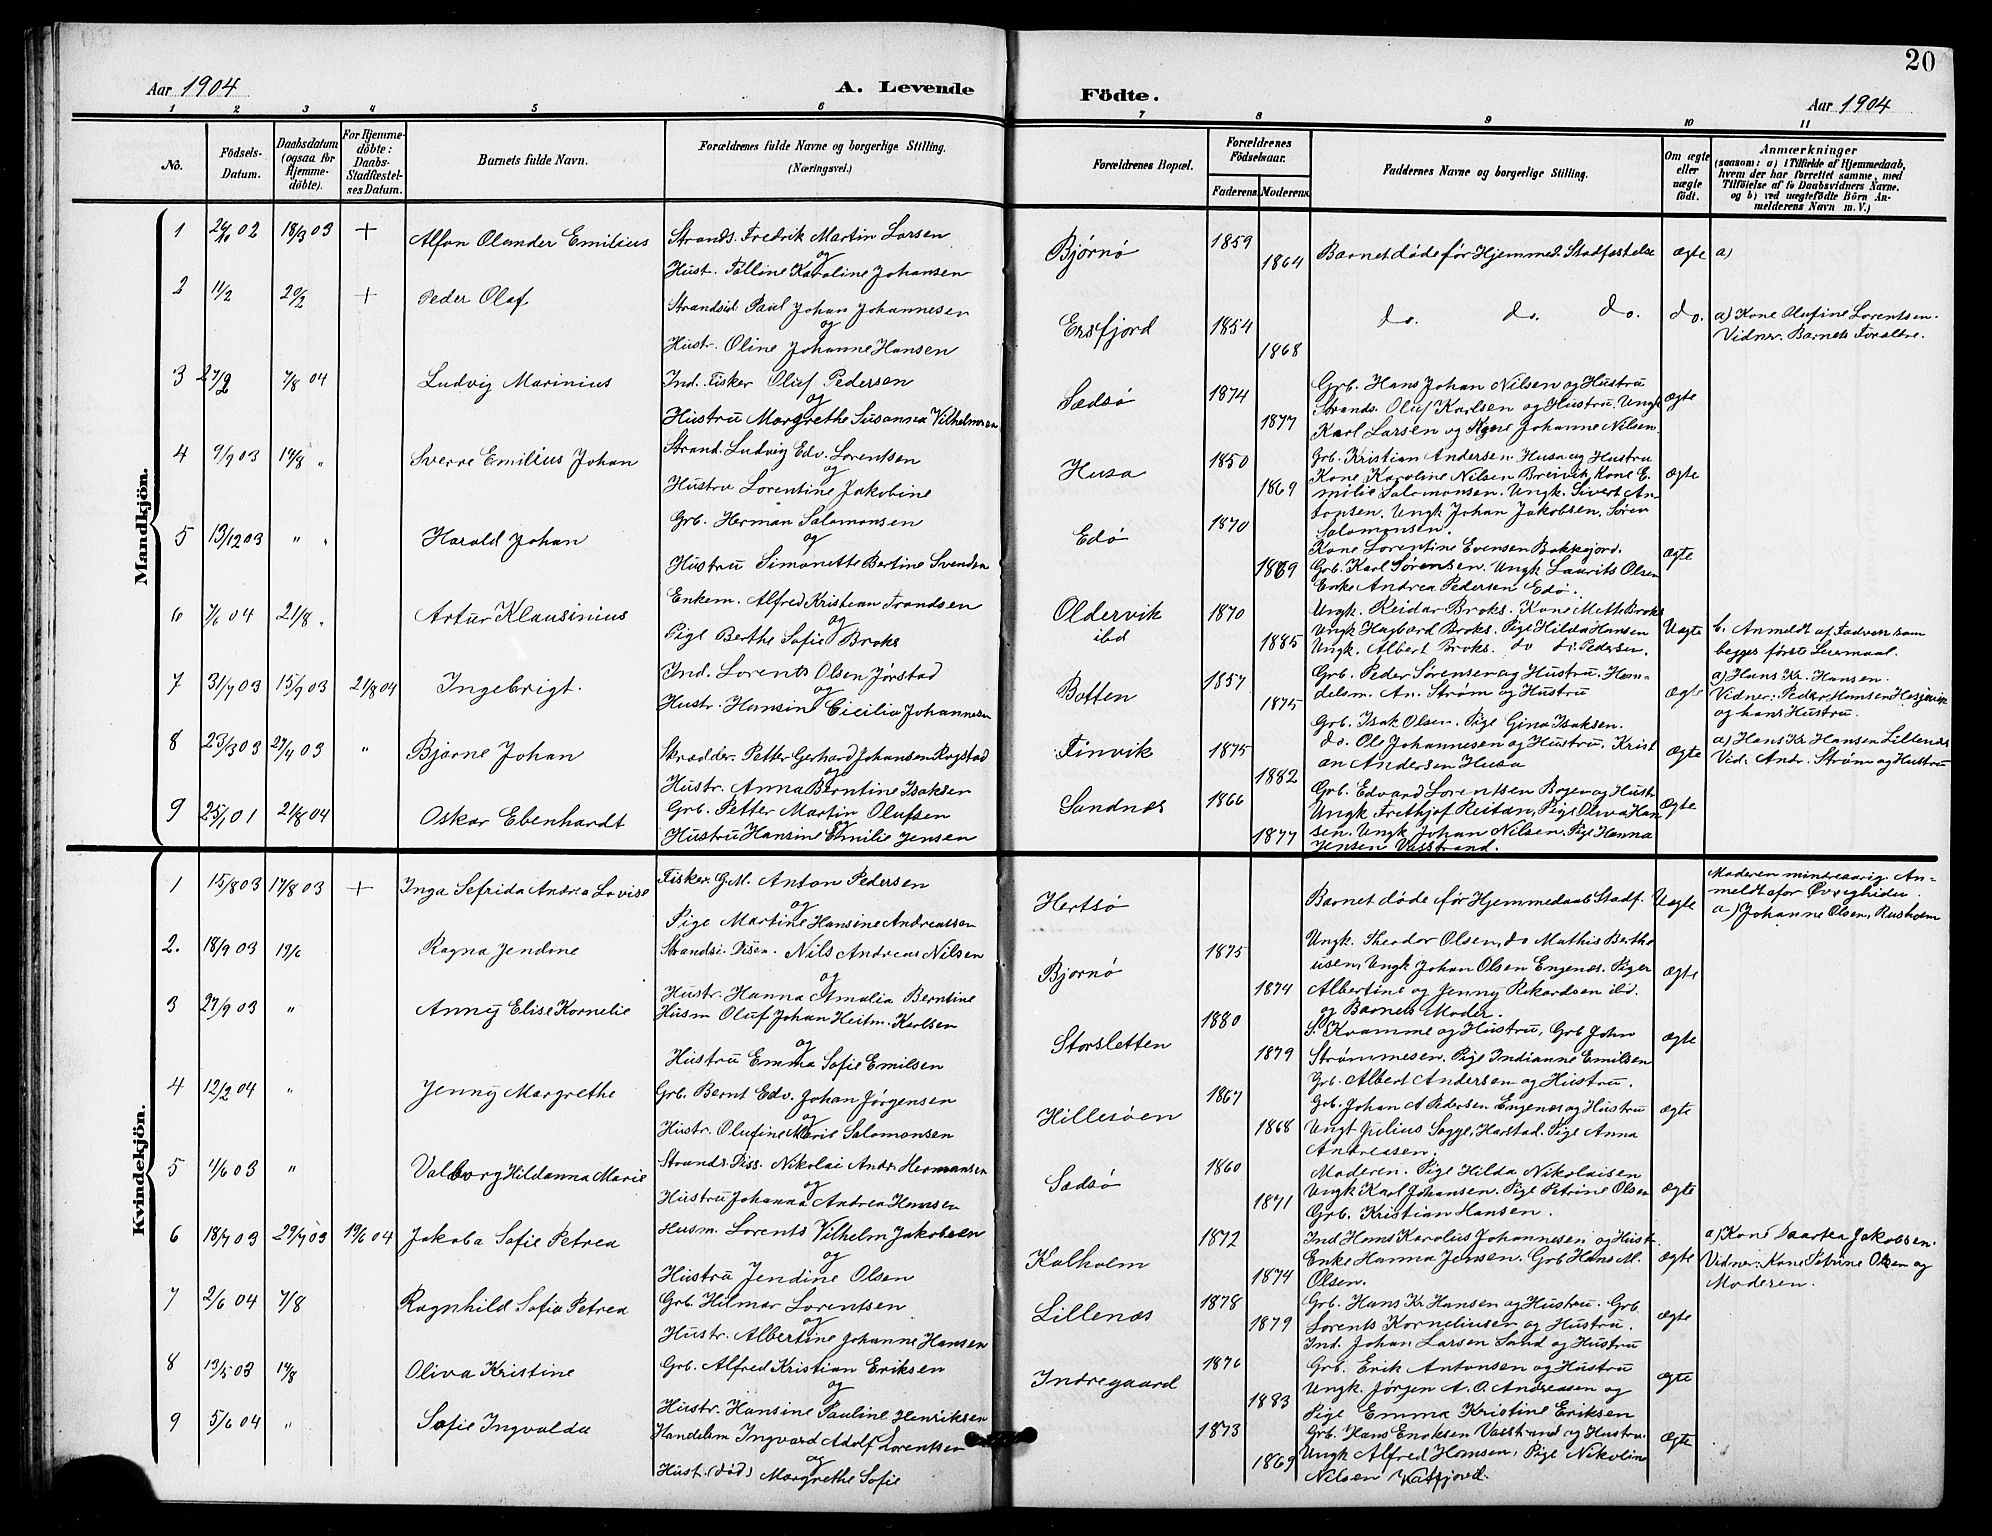 20
Aar 1904
A. Levende
Födte.
Aar 1904
1 2 3 4 5 6 7 8 9 10 11
No.
Födsels-
Datum.
Daabsdatum
(ogsaa for
Hjemme-
döbte).
For Hjemme-
döbte:
Daabs-
Stadfæstel-
ses Datum.
Barnets fulde Navn.
Forældrenes fulde Navne og borgerlige Stilling.
(Næringsvei.)
Forældrenes Bopæl.
Forældrenes
Födselsaar.
Faderens. Moderens.
Faddernes Navne og borgerlige Stilling.
Om ægte
eller
uægte
födt.
Anmærkninger
(saasom: a) i Tilfælde af Hjemmedaab,
hvem der har forrettet samme, med
Tilföielse af to Daabsvidners Navne.
og b) ved uægtefödte Börn An-
melderens Navn m. V.)
Mandkjön.
1 18/3 03 + Alfon Olander Emilius
Strands. Fredrik Martin Larsen
og
Hust. Karoline Johansen
Bjørnø 1859 1864
Barnet døde før Hjemmed. Stadfæstelse ægte a)
2 11/2 20/2 + Peder Olaf
Strandsid Paul Johan Johannesen
og
Hustr. Oline Johanne Hansen
Ersfjord 1854 1868
do. do. do. do.
a) Kone Olufine Lorentsen.
Vidner. Barnets Forældre.
3 27/2 7/8 04 Ludvig Marinius
Ind. Fisker Oluf Pedersen
og
Hustru Margrethe Susanna Vilhelmsen
Sædsø 1874 1877
Grb. Hans Johan Nilsen og Hustru
Strands. Oluf Karlsen og Hustru. Ungk
Karl Larsen og Johanne Nilsen.
ægte
4 9/9 03 14/8 " Sverre Emilius Johan
Strand. Ludvig Edv. Lorentsen
og
Hustru Lorentine Jakobine
Husa 1850 1869
Grb. Kristian Andersen Husa og Hustru
Kone Karoline Nilsen Breivik, Kone E-
milie Salomonsen. Ungk. Sivert An-
tonsen. Ungk Johan Jakobsen. Søren
Salomonsen.
ægte
5 13/12 03 " " Harald Johan
Grb. Herman Salomonsen
og
Hustru Simonette Bertine Svendsen
Edø 1870 1869
Kone Lorentine Evensen Bakkejord.
Grb. Karl Sørensen. Ungk Laurits Olsen
Enke Andrea Pedersen Edø.
ægte
6 7/6 04 21/8 " Artur Klausinius
Enkem. Alfred Kristian Frandsen
og
Pige Berthe Sofie Broks
Oldervik
ibd
1870 1885
Ungk. Reidar Broks. Kone Methe Broks
Ungk Hagbard Broks. Pige Hilda Hansen
Ungk. Albert Broks. do Pedersen.
Uægte
b. Anmeldt af Faderen som
begges første Leiermaal.
7 31/7 03 15/9 03 21/8 04 Ingebrigt.
Ind. Lorents Olsen Jørstad
og
Hustr. Hansin Cicilia Johannesen
Botten 1857 1875
Grb. Peder Sørensen og Hustru. Han-
delsm. An. Strøm og Hustru
Grb. Isak Olsen. Pige Gina Isaksen.
ægte
a) Hans Kr. Hansen.
Vidner: Peder Hansen
og hans Hustru.
8 23/3 03 27/4 03 " Bjarne Johan
Skrædder. Petter Gerhard Johansen Rogstad
og
Hustr. Anna Berntine Isaksen
Finvik 1875 1882
do. Ole Johannesen og Hustru. Krist
an Andersen Husa
ægte
a) Hans Kr Hansen Lillenæs
Vid. Andr. Strøm og Hustru
9 25/1 01 21/8 04 Oskar Ebenhardt
Grb. Petter Martin Olufsen
og
Hustru Hansine Emilie Jensen
Sandnæs 1866 1877
Grb. Edvard Lorentsen Bogen og Hust
Ungk. Frethjof Reitan, Pige Oliva Han-
sen. Ungk Johan Nilsen. Pige Hanna
Jensen Vasstrand.
ægte
Kvindekjön.
1 15/8 03 17/8 03 + Inga Sefrida Andrea Lovise
Fisker G.M. Anton Pedersen
og
Pige Martine Hansine Andreassen
Hertsø
Barnet døde før Hjemmedaab Stadf. Uægte
Moderen mindreaarig. An-
meldt afor Øvrigheden.
a) Johanne Olsen, Rusholm
2. 18/9 03 19/6 Ragna Jendine
Nils Andreas Nilsen
og
Hustr. Hanna Amalia Berntine
Bjørnø 1875 1874
Ungk. Theodor Olsen, do Mathis Bertho
usen, Ungk Johan Olsen Engenes. Piger
Albertine og Jenny Rikardsen ibid.
og Barnets Moder.
ægte
3 27/9 03 " Anny Elise Kornelie
Husm Oluf Johan Heitm. Karlsen
og
Hustru Emma Sofie Emilsen
Storsletten 1880 1879
S. Kvamme og Hustru, Grb John
Strømmesen. Pige Indianne Emilsen
Grb. Albert Andersen og Hustru.
ægte
4 12/2 04 " Jenny Margrethe
Grb. Bernt Edv. Johan Jørgensen
og
Hustr. Olufine Marie Salomonsen
Hillesøen 1867 1868
Grb. Johan A Pedersen Engenæs og Hustru
Ungk Julius Sagge, Harstad. Pige Anna
Andreasen.
ægte
5 4/6 03 " Valborg Hildanna Marie
Strands. Fiss. Nikolai Andr. Hermansen
og
Hustru Johanna Andrea Hansen
Sædsø 1860 1871
Moderen. Pige Hilda Nikolaisen
Ungk Karl Johansen. Pige Petrine Olsen
Grb. Kristian Hansen.
ægte
6 18/7 03 29/7 03 19/6 04 Jakoba Sofie Petrea
Husm. Lorents Vilhelm Jakobsen
og
Hustru Jendine Olsen
Kalholm 1872 1874
Ind Hans Karolius Johannesen og Hust.
Enke Hanna Jensen. Grb Hans M.
Olsen.
ægte
a) Kone Jakobsen.
Vidner: Kone Petrine Olsen og
Moderen.
7 2/6 04 7/8 Ragnhild Sofia Petrea
Grb. Hilmar Lorentsen
og
Hustr. Albertine Johanne Hansen
Lillenæs 1878 1879
Grb. Hans Kr Hansen og Hustru. Grb
Lorents Korneliusen og Hustru.
Ind. Johan Larsen Sand og Hustru
ægte
8 19/5 03 14/8 Oliva Kristine
Grb. Alfred Kristian Eriksen
og
Hustr. Hansine Pauline Henriksen
Indregaard 1876 1883
Grb. Erik Antonsen og Hustru
Ungk. Jørgen A. O. Andreasen og
Pige Emma Kristine Eriksen
ægte
9 5/6 04 " Sofie Ingvalda
Handelsm Ingvard Adolf Lorentsen
og
Hust. (død) Margrethe Sofie
1873 1869
Grb. Hans Enoksen Vasstrand og Hustru.
Ungk Alfred Hansen, Pige Nikoline
Nilsen Katfjord.
ægte